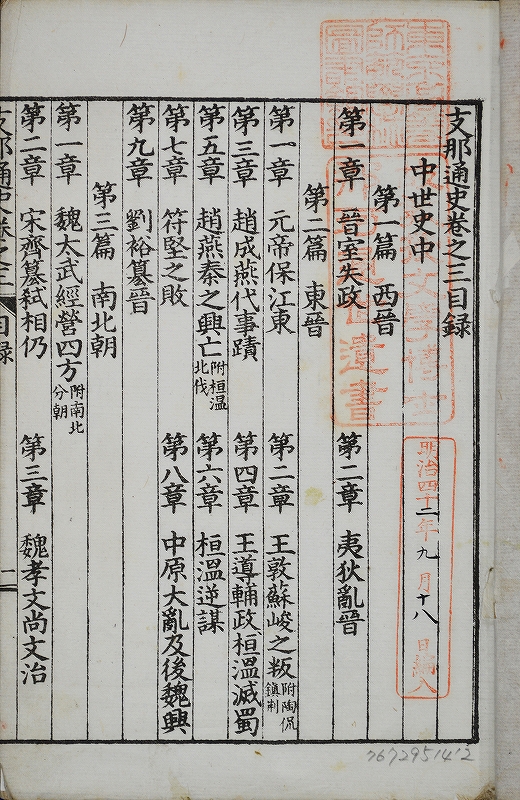 支那通史卷之三目録
中世史中
第一篇　西晉
第一章　晉室失政　第二章　夷狄亂晉
第二篇　東晉
第一章　元帝保江東　第二章　王敦蘇峻之叛 附陶侃鎮荊
第三章　趙成燕代事蹟　第四章　王導輔政桓溫滅蜀
第五章　趙燕秦之興亡 附桓溫北伐　第六章　桓溫逆謀
第七章　符堅之敗　第八章　中原大亂及後魏興
第九章　劉裕簒晉
第三篇　南北朝
第一章　魏太武經營四方 附南北分朝
第二章　宋齊簒弑相仍　第三章　魏孝文尚文治
支那通史卷之三　目録　一
明治四十二年九月十八日購入
遺書
7672951412